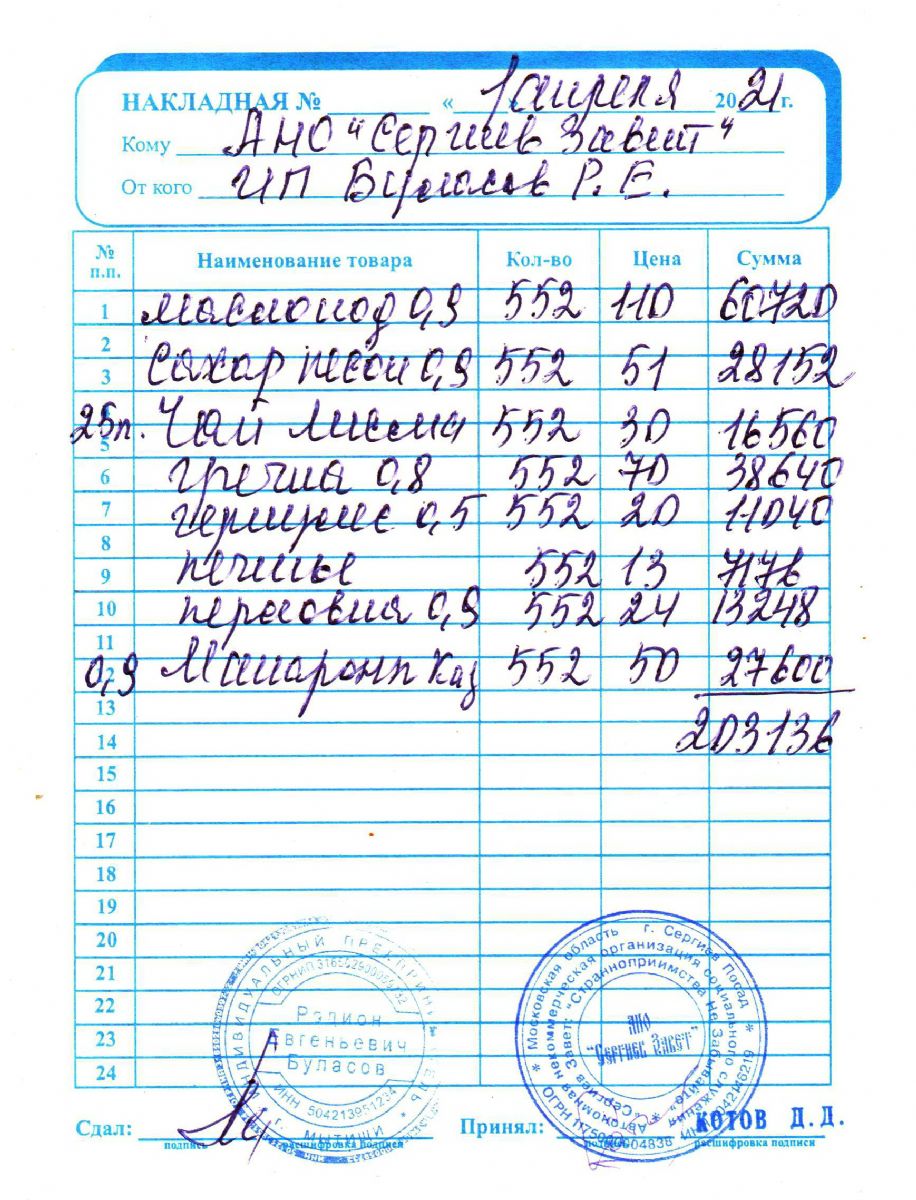 НАКЛАДНАЯ № « 1 апреля 2021 г.
Кому АНО "Сергиев Завет"
От кого ИП Буласов Р. Е.
№ п.п. Наименование товара Кол-во Цена Сумма
1 масло под 0,9 552 110 60720
2
3 Сахар песок 0,9 552 51 28152
25п. Чай Лисма 552 30 16560
5
6 гречка 0,8 552 70 38640
7 геркулес 0,5 552 20 11040
8
9 печенье 552 13 7176
10 перловка 0,9 552 24 13248
11
0,9 Макароны Каз 552 50 27600
13
14 203136
15
16
17
18
19
20
21
22
23
24
ИНДИВИДУАЛЬНЫЙ ПРЕДПРИНИМАТЕЛЬ
Радион
Авгеньевич
Буласов
ИНН 504213951234
г. МЫТИЩИ
Московская область г. Сергиев Посад
Автономная некоммерческая организация социального служения
Сергиев Завет: "Странноприимства Не Забывайте"
АНО
"Сергиев Завет"
Сдал: Принял: КОТОВ Д.Д.
подпись расшифровка подписи подпись расшифровка подписи